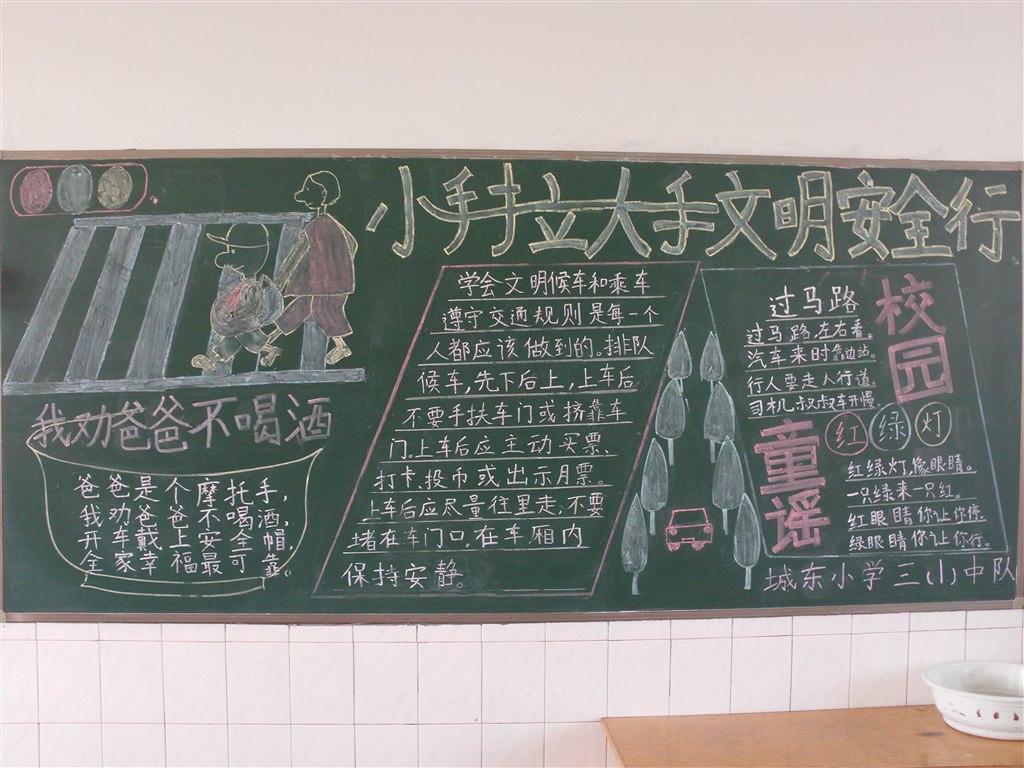 小手拉大手文明安全行
我劝爸爸不喝酒
爸爸是个摩托手，
我劝爸爸不喝酒，
开车戴上安全帽，
全家幸福最可靠。
学会文明候车和乘车
遵守交通规则是每一个
人都应该做到的。排队
候车，先下后上，上车后
不要手扶车门或挤靠车
门。上车后应主动买票、
打卡、投币或出示月票。
上车后应尽量往里走，不要
堵在车门口。在车厢内
保持安静。
校园
童谣
过马路
过马路，左右看。
汽车来时靠边站。
行人要走人行道，
司机叔叔车开慢。
红绿灯
红绿灯，像眼睛。
一只绿来一只红。
红眼睛你让你停
绿眼睛你让你行。
城东小学三(1)中队